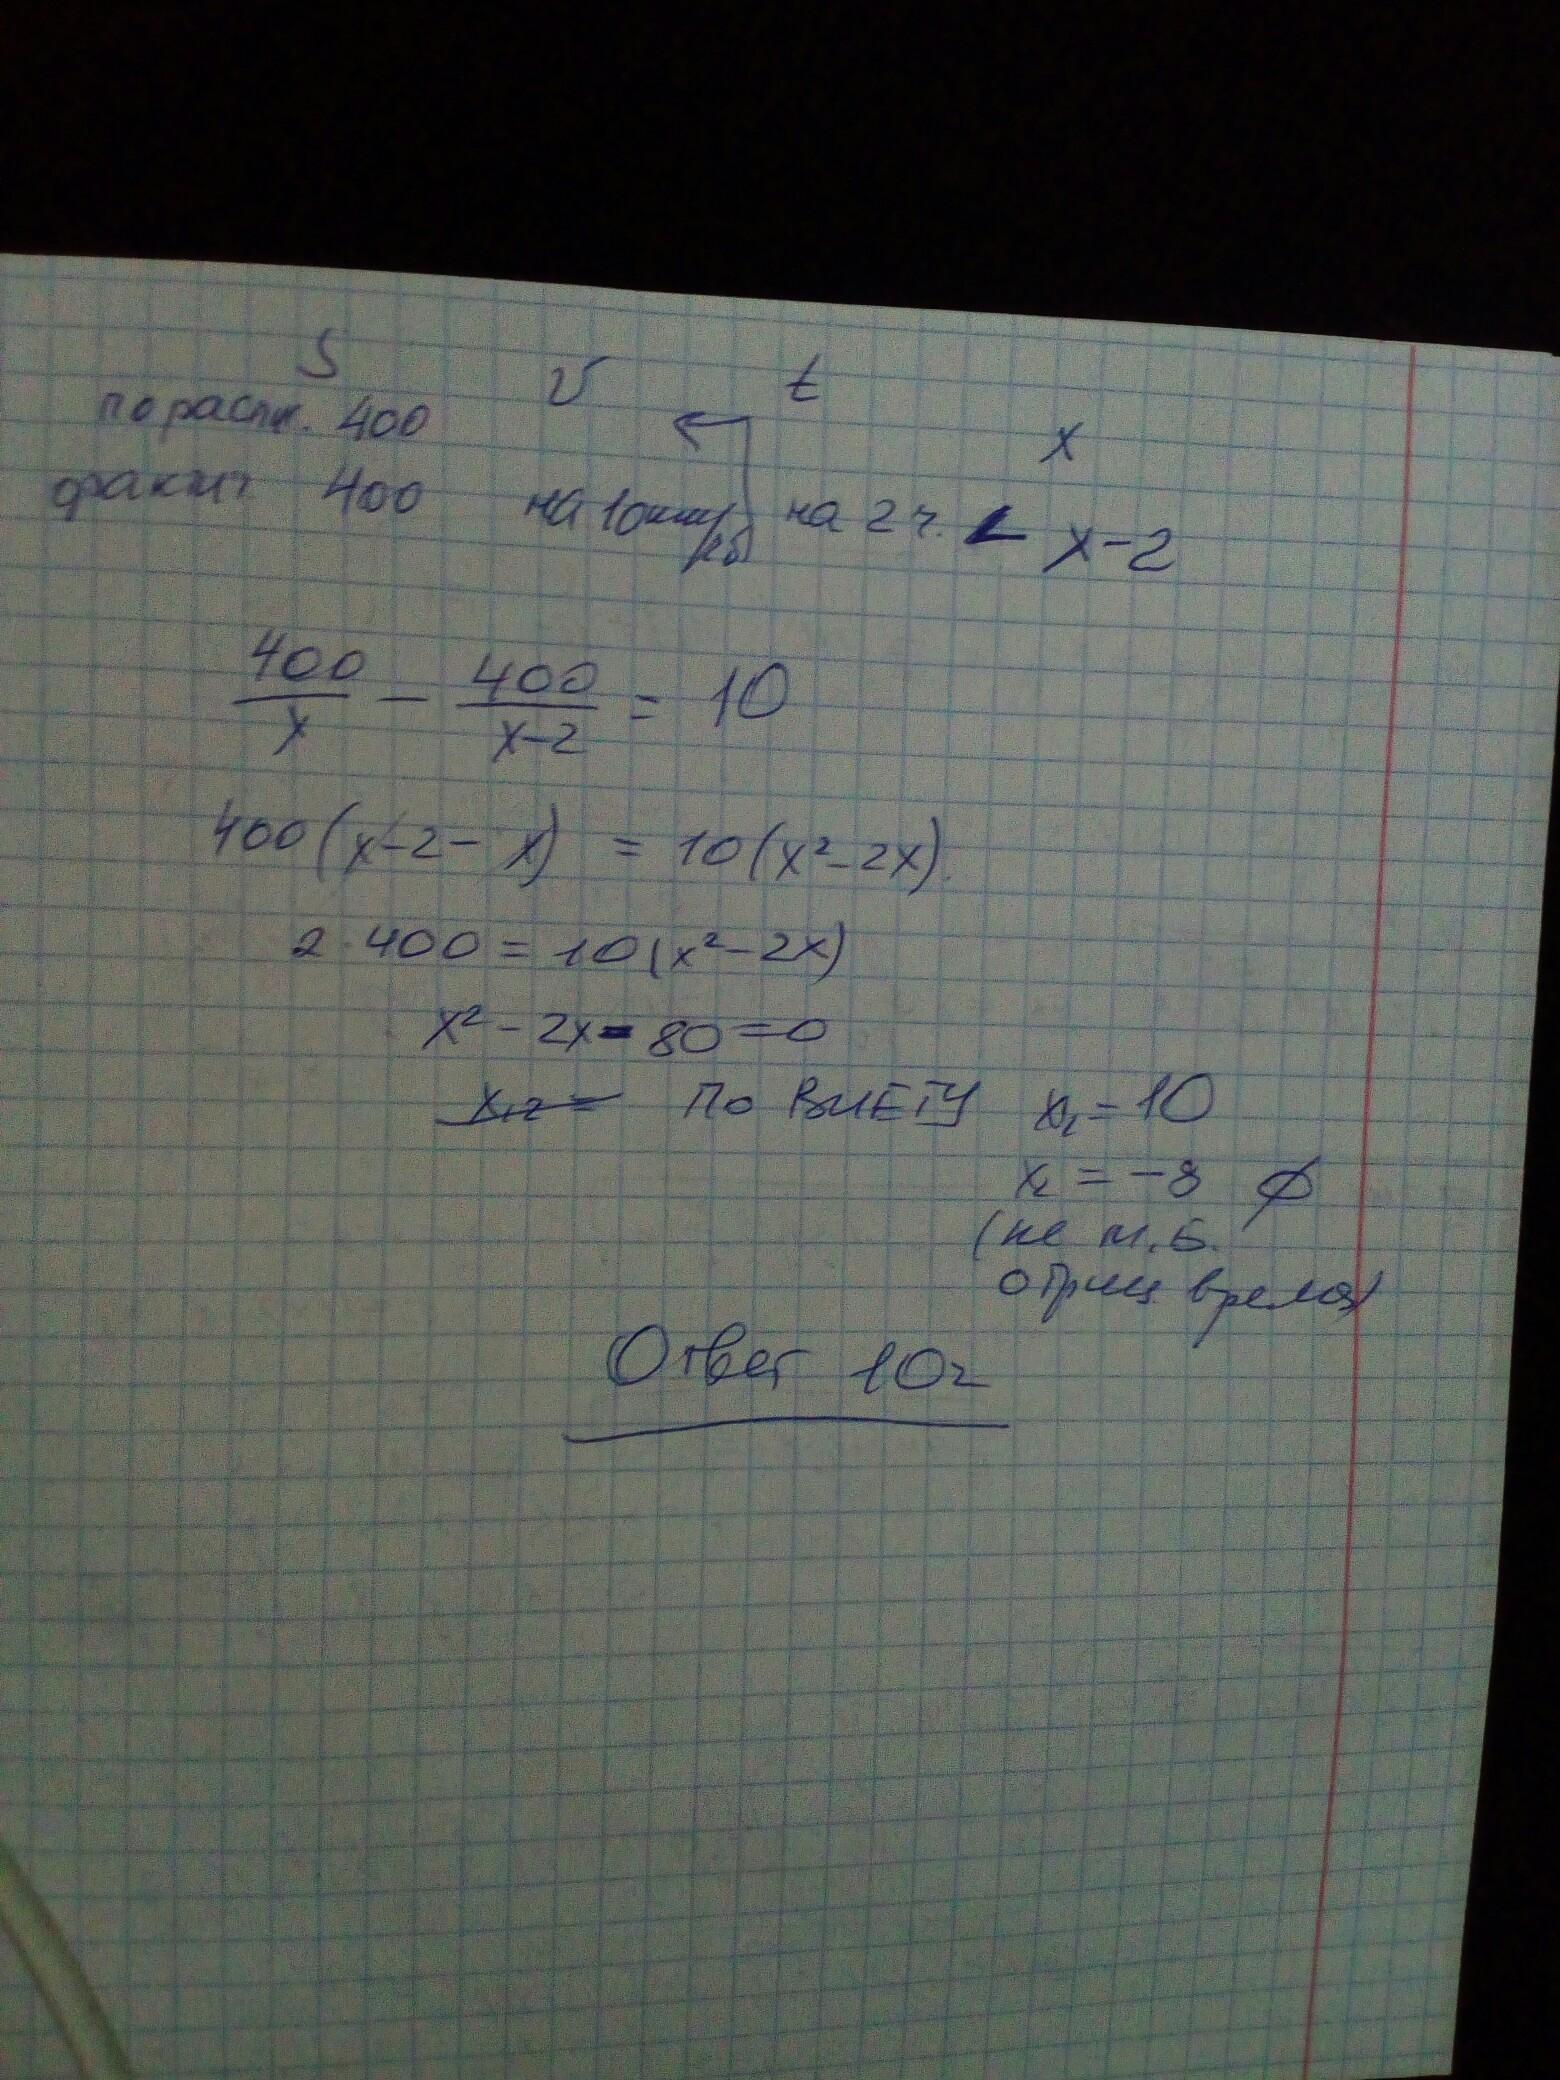 S V t
по распи. 400 x
фактич 400 на 10км/ч б на 2ч. < x-2
400/x - 400/x-2 = 10
400(x-2-x) = 10(x²-2x).
2·400 = 10(x²-2x)
x²-2x-80=0
x₁,₂= По ВИЕТУ x₁=10
x₂ = -8 ∅
(не м.б.
отриц время)
Ответ 10ч